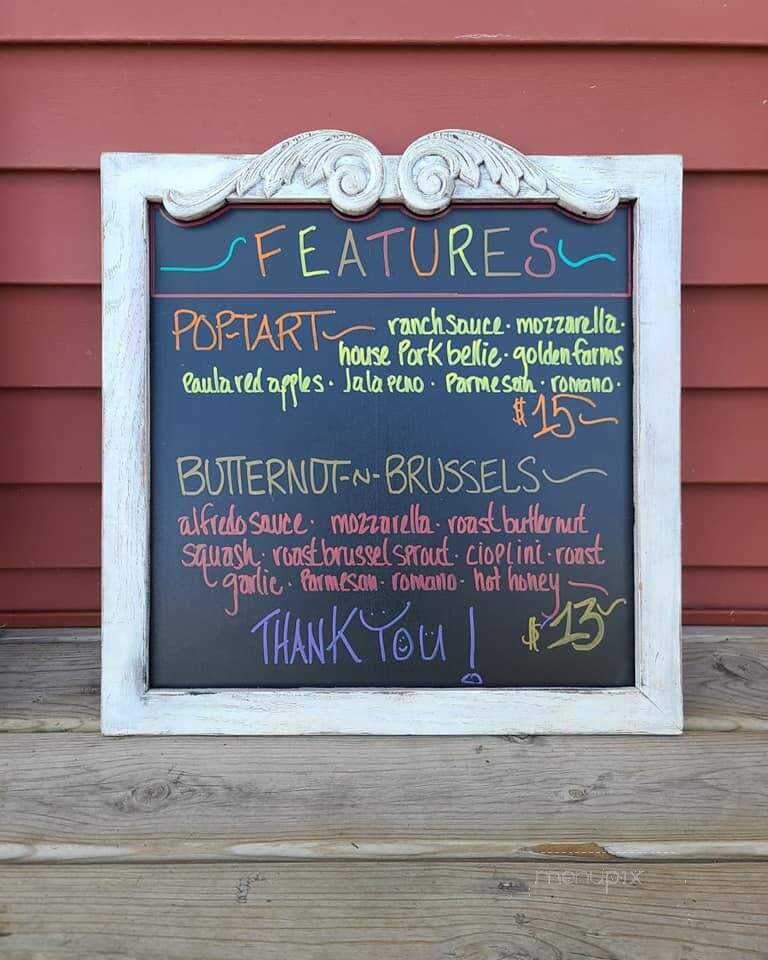 FEATURES
POP-TART ranch sauce · mozzarella ·
house Pork bellie · golden farms
Paula red apples · Jalapeno · Parmesan · romano ·
$15
BUTTERNUT-N-BRUSSELS
alfredo sauce · mozzarella · roast butternut
squash · roast brussel sprout · cioplini · roast
garlic · Parmesan · romano · hot honey
$13
THANK YOU!
menupix